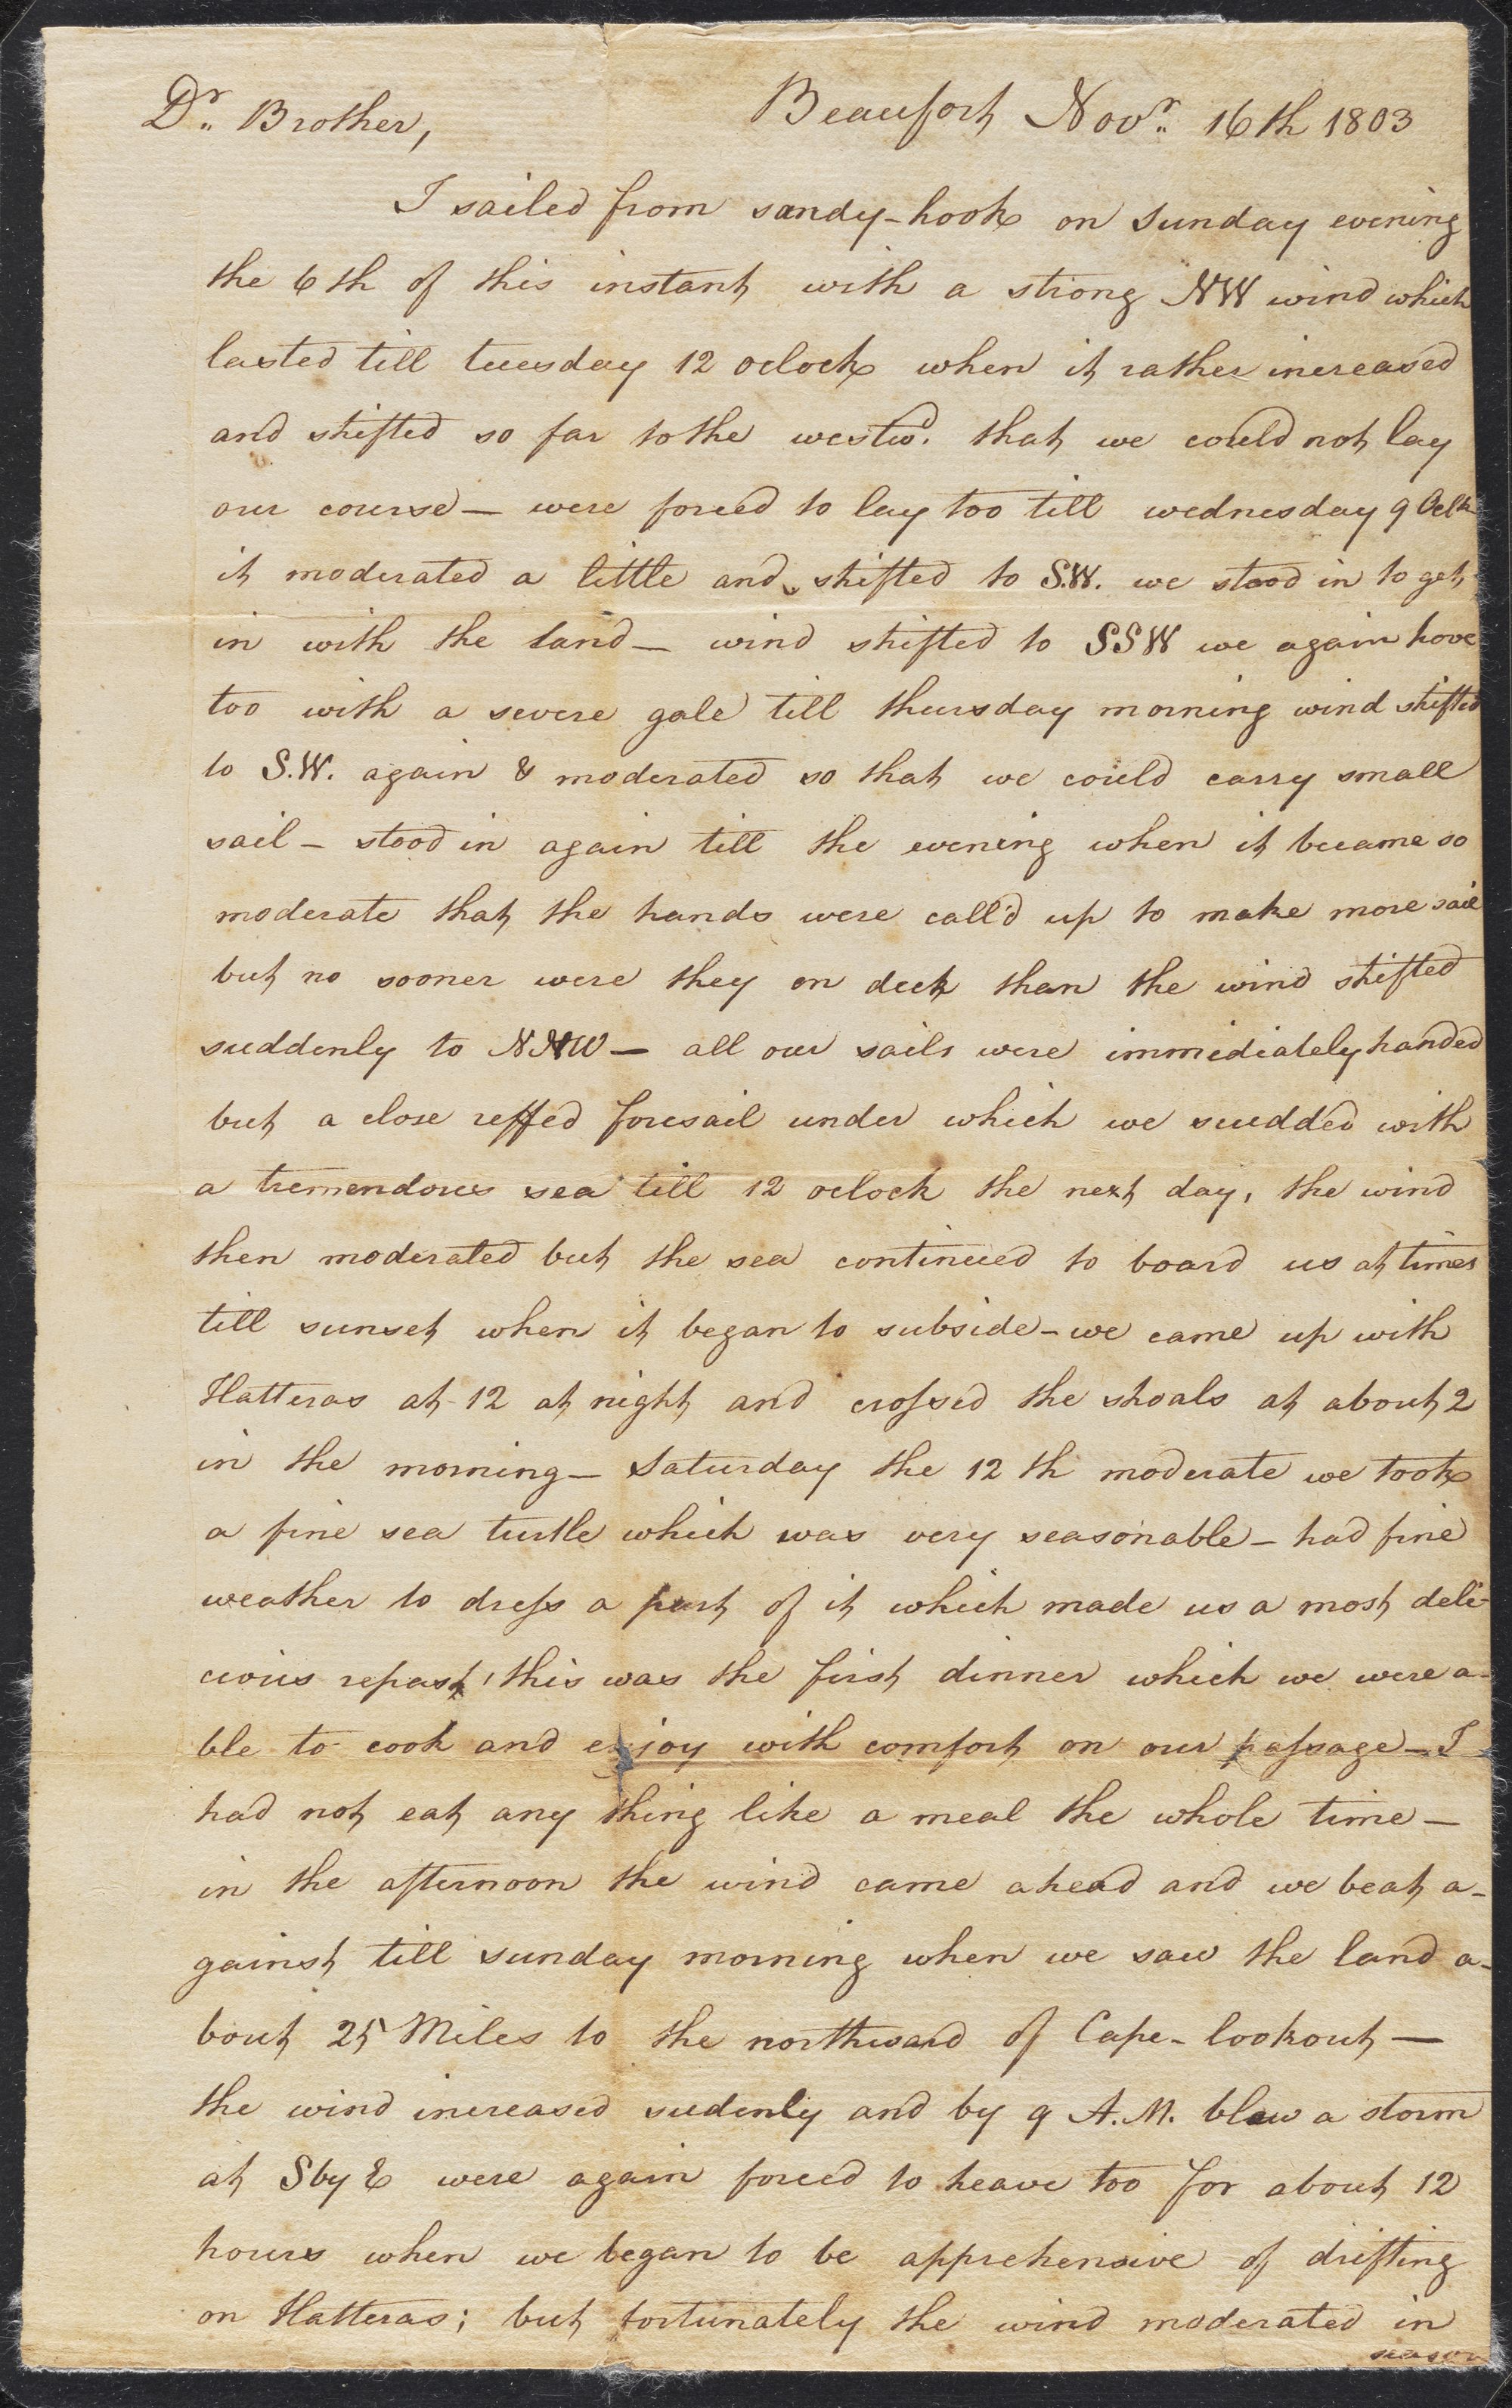 Dr. Brother,
Beaufort Novr. 16th 1803
I sailed from sandy-hook on Sunday evening
the 6th of this instant with a strong NW wind which
lasted till tuesday 12 oclock when it rather increased
and shifted so far to the westwd. that we could not lay
our course — were forced to lay too till wednesday 9 Oclk
it moderated a little and shifted to S.W. we stood in to get
in with the land — wind shifted to SSW we again hove
too with a severe gale till thursday morning wind shifted
to S.W. again & moderated so that we could carry small
sail — stood in again till the evening when it became so
moderate that the hands were call'd up to make more sail
but no sooner were they on deck than the wind shifted
suddenly to NNW — all our sails were immidiately handed
but a close reffed foresail under which we scudded with
a tremendous sea till 12 oclock the next day, the wind
then moderated but the sea continued to board us at times
till sunset when it began to subside — we came up with
Hatteras at 12 at night and crossed the shoals at about 2
in the morning — Saturday the 12th moderate we took
a fine sea turtle which was very seasonable — had fine
weather to dress a part of it which made us a most deli-
cious repast, this was the first dinner which we were a-
ble to cook and enjoy with comfort on our passage — I
had not eat any thing like a meal the whole time —
in the afternoon the wind came ahead and we beat a-
gainst till sunday morning when we saw the land a-
bout 25 Miles to the northward of Cape-lookout —
the wind increased sudenly and by 9 A.M. blew a storm
at S by E were again forced to heave too for about 12
hours when we began to be apprehensive of drifting
on Hatteras; but fortunately the wind moderated in
season